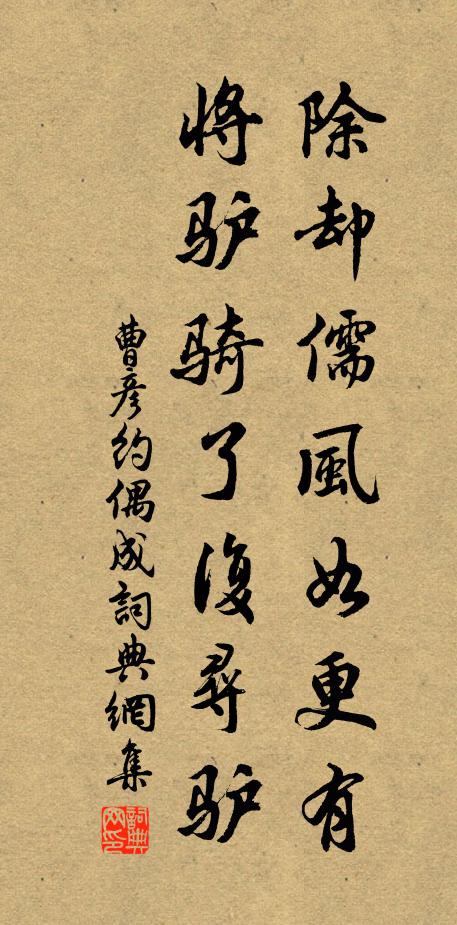 除却儒風如更有
将驴骑了復尋驴
曹彦約偶成詞典網集
詞典網印